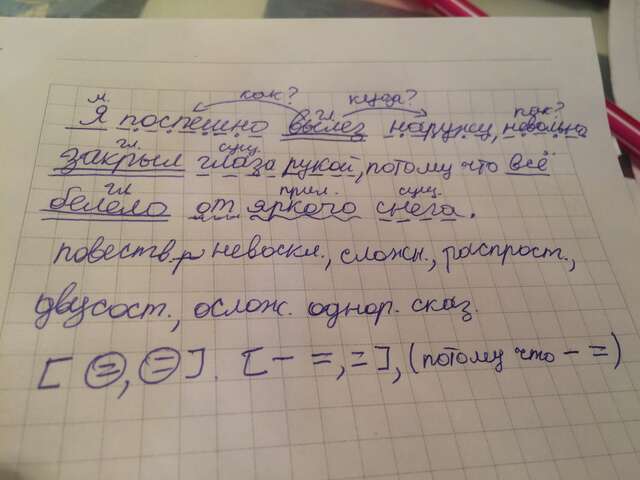 м. как? гл. куда? как?
Я поспешно вылез наружу, невольно
гл. сущ.
закрыл глаза рукой, потому что всё
гл прил. сущ.
белело от яркого снега.
повеств., невоскл., сложн., распрост.,
двусост., ослож. однор. сказ.
[ =, = ]. [ - =, = ], (потому что - =)